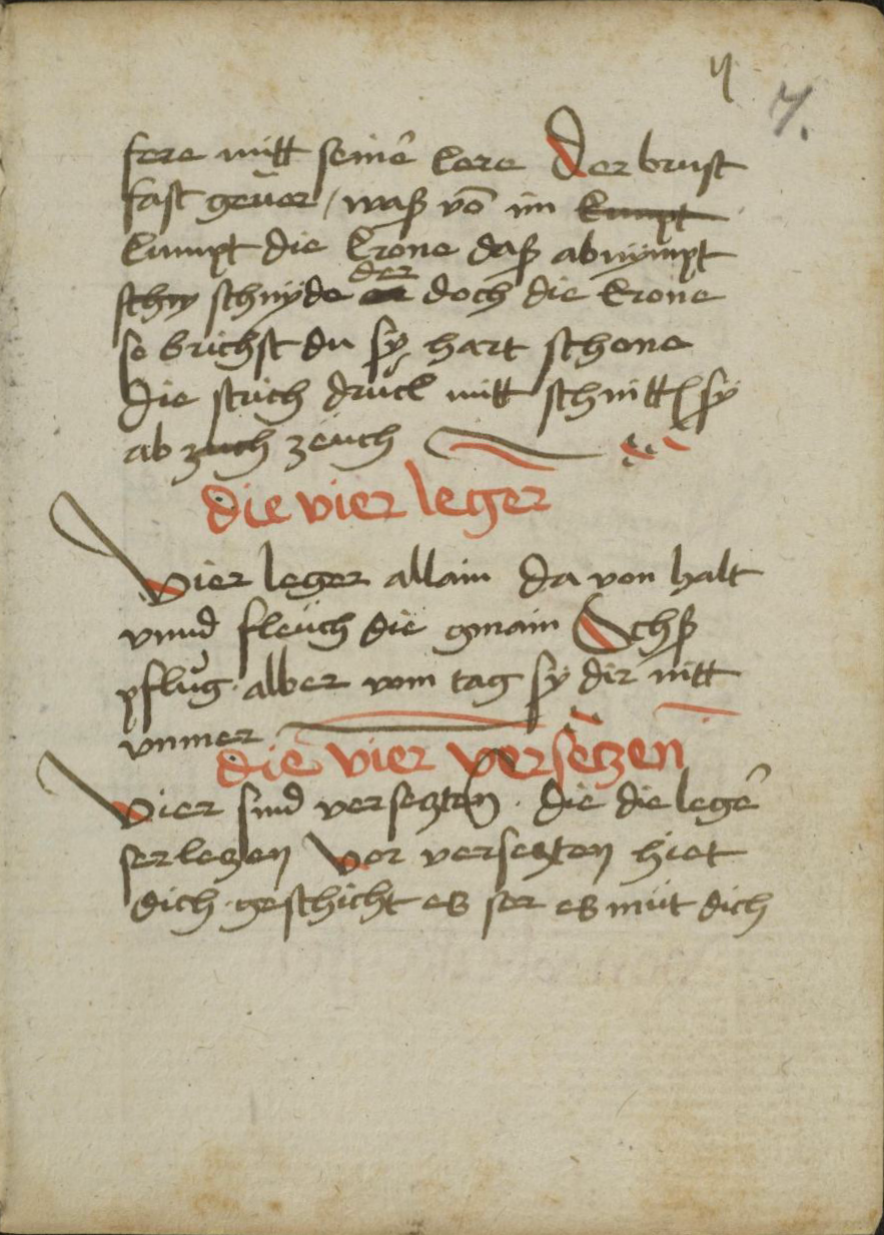 7.
fere mitt seinē kere Der brust
fast geuer / waß vō im kumpt
kumpt die krone daß abnympt
schny schnyde der doch die krone
so brichst du sy hart schone
die strich druck mitt schnitt sy
ab zuch zeuch
die vier leger
Vier leger allain da von halt
vnnd fleüch die gmain Ochß
pflug alber vom tag sy dir nitt
vnmer
die vier versetzen
Vier sind versetzen · die die legē
ser letzen Vor versetzen hiet
dich geschicht es ser es müt dich